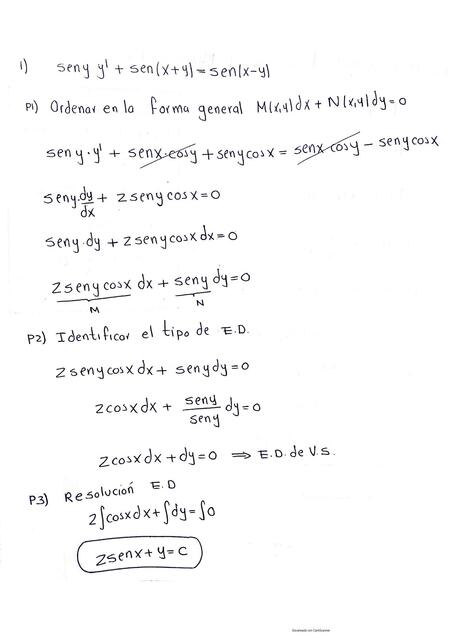 1) seny y' + sen(x+y) = sen(x-y)
P1) Ordenar en la forma general M(x,y)dx + N(x,y)dy = 0
seny·y' + senx·cosy + senycosx = senx cosy - senycosx
seny·dy/dx + 2senycosx = 0
seny·dy + 2senycosxdx = 0
2senycosx dx + seny dy = 0
M N
P2) Identificar el tipo de E.D.
2senycosxdx + senydy = 0
2cosxdx + seny/seny dy = 0
2cosxdx + dy = 0 ⇒ E.D. de V.S.
P3) Resolución E.D
2∫cosxdx + ∫dy = ∫0
2senx + y = c
Escaneado con CamScanner